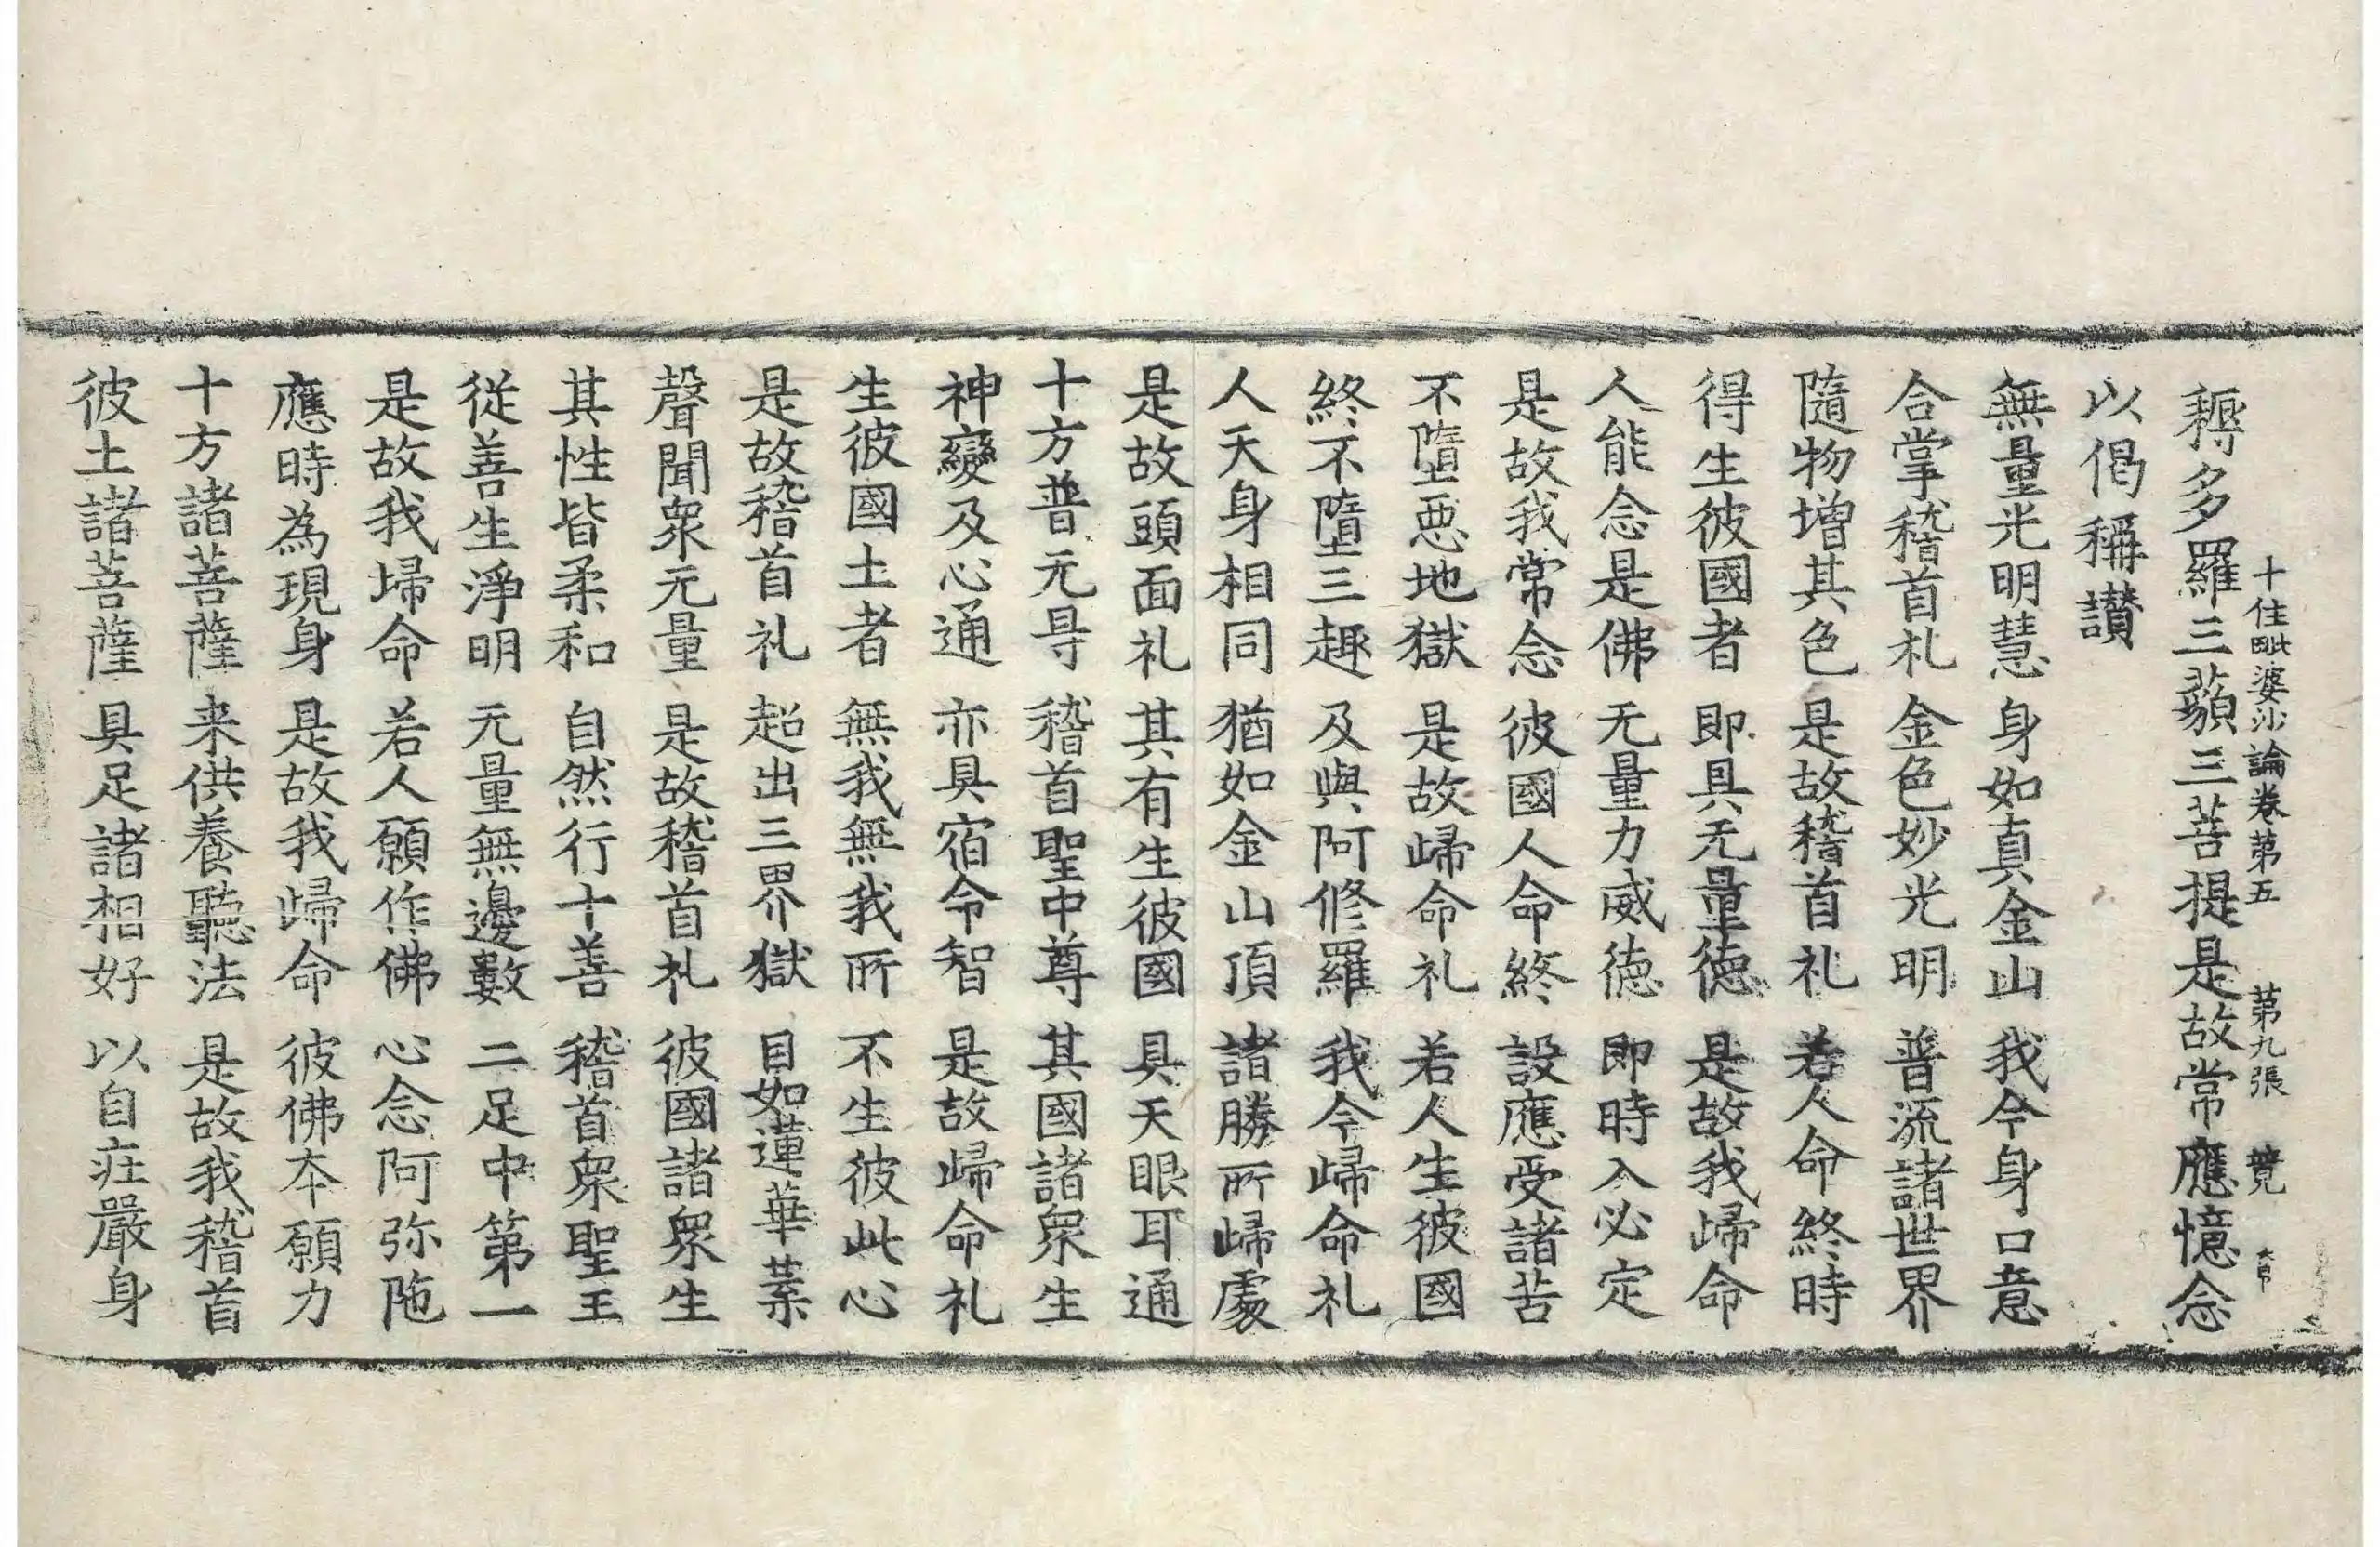 十住毗婆沙論卷第五 第九張 競
耨多羅三藐三菩提是故常應憶念
以偈稱讃
無量光明慧 身如真金山 我今身口意
合掌稽首礼 金色妙光明 普流諸世界
隨物增其色 是故稽首礼 若人命終時
得生彼國者 即具无量德 是故我歸命
人能念是佛 无量力威德 即時入必定
是故我常念 彼國人命終 設應受諸苦
不墮惡地獄 是故歸命礼 若人生彼國
終不墮三趣 及與阿修羅 我今歸命礼
人天身相同 猶如金山頂 諸勝所歸處
是故頭面礼 其有生彼國 具天眼耳通
十方普无㝵 稽首聖中尊 其國諸衆生
神變及心通 亦具宿命智 是故歸命礼
生彼國土者 無我無我所 不生彼此心
是故稽首礼 超出三界獄 目如蓮華葉
聲聞衆无量 是故稽首礼 彼國諸衆生
其性皆柔和 自然行十善 稽首衆聖王
從善生淨明 无量無邊數 二足中第一
是故我歸命 若人願作佛 心念阿弥陁
應時為現身 是故我歸命 彼佛本願力
十方諸菩薩 来供養聽法 是故我稽首
彼土諸菩薩 具足諸相好 以自莊嚴身